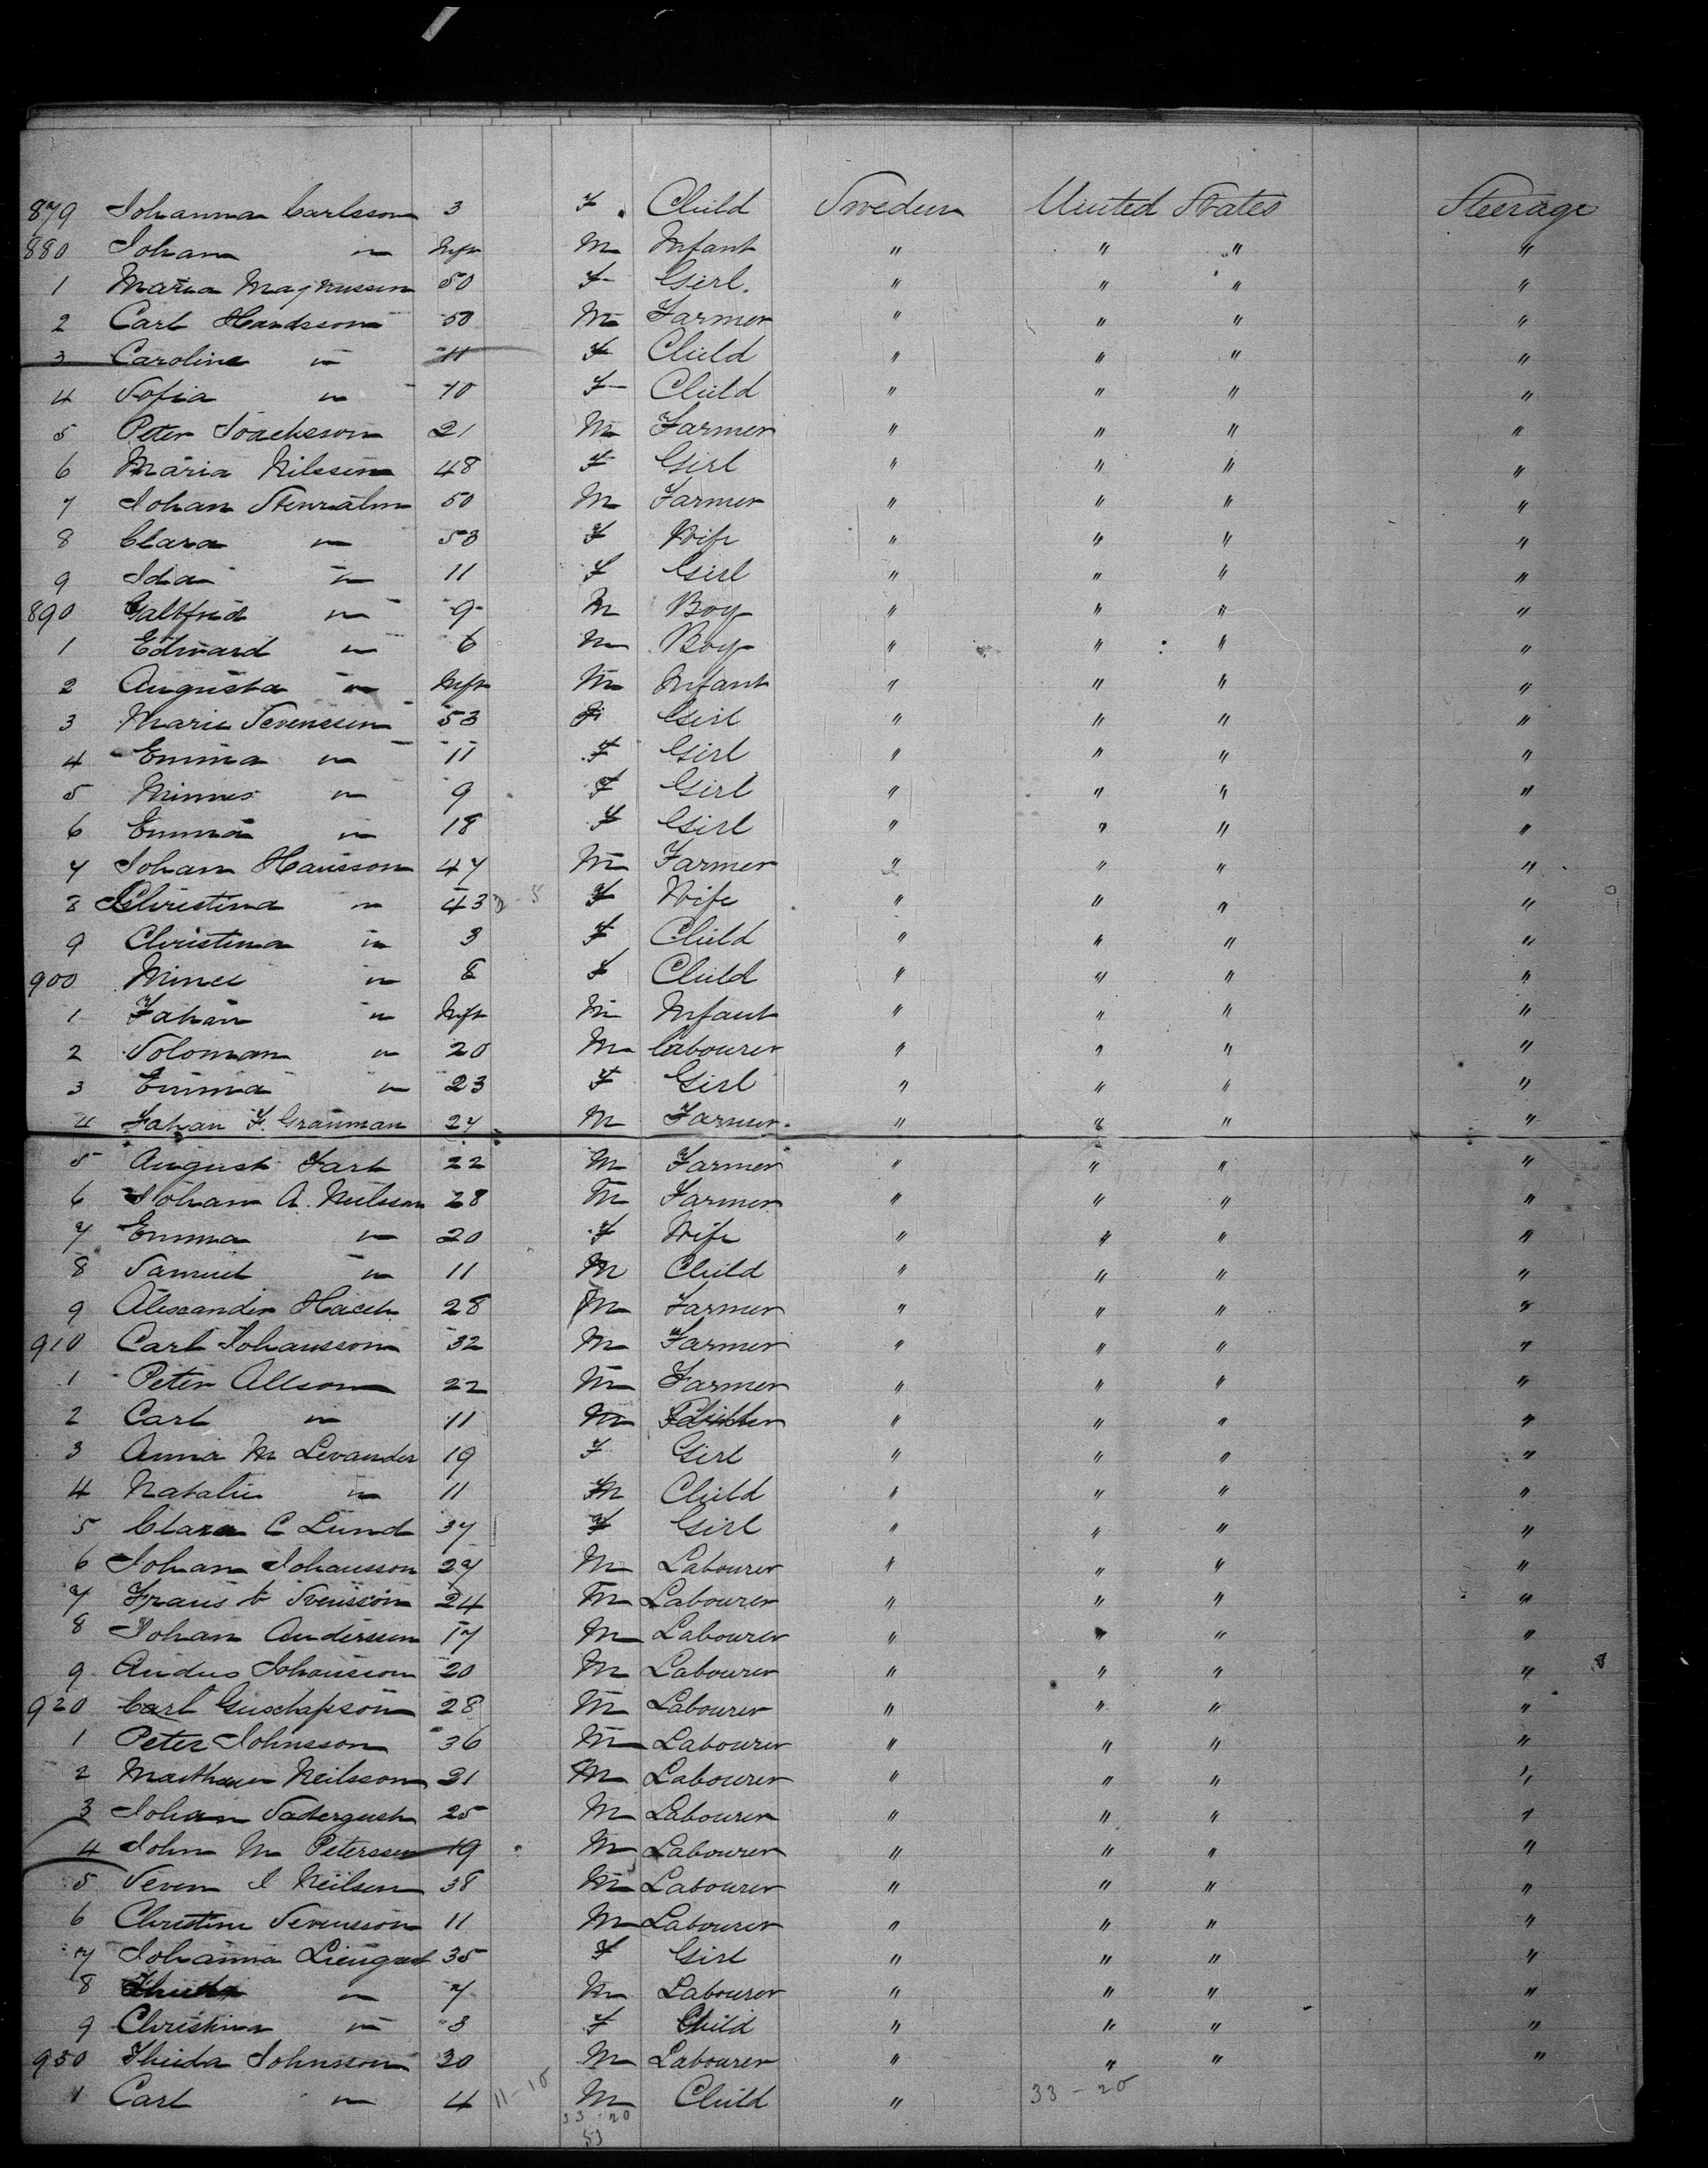 879 Johanna Carlsson 3 F. Child Sweden United States Steerage
880 Johan " Inft M Infant " " " "
1 Maria Magnussen 50 F Girl. " " " "
2 Carl Handsson 50 M Farmer " " " "
3 Caroline " 11 F Child " " " "
4 Sofia " 10 F Child " " " "
5 Peter Isacksson 21 M Farmer " " " "
6 Maria Nilssen 48 F Girl " " " "
7 Johan Stenralm 50 M Farmer " " " "
8 Clara " 53 F Wife " " " "
9 Ida " 11 F Girl " " " "
890 Galtfrid " 9 M Boy " " " "
1 Edward " 6 M Boy " " " "
2 Augusta " Inft M Infant " " " "
3 Marie Svenssen 53 F Girl " " " "
4 Emma " 11 F Girl " " " "
5 Minnes " 9 F Girl " " " "
6 Emma " 18 F Girl " " " "
7 Johan Hansson 47 M Farmer " " " "
8 Christina " 43 F Wife " " " "
9 Christina " 3 F Child " " " "
900 Mines " 8 F Child " " " "
1 Johan " Inft M Infant " " " "
2 Soloman " 20 M Labourer " " " "
3 Emma " 23 F Girl " " " "
4 Johan F. Granman 27 M Farmer " " " "
5 August Fark 22 M Farmer " " " "
6 Johan A. Neilsson 28 M Farmer " " " "
7 Emma " 20 F Wife " " " "
8 Samuel " 11 M Child " " " "
9 Alexander 28 M Farmer " " " "
910 Carl Johansson 32 M Farmer " " " "
1 Peter Allson 22 M Farmer " " " "
2 Carl " 11 M " " " "
3 Anna M Levander 19 F Girl " " " "
4 Natalie " 11 M Child " " " "
5 Clara C Lund 37 F Girl " " " "
6 Johan Johansson 27 M Labourer " " " "
7 Frans Svensson 24 M Labourer " " " "
8 Johan Anderssen 17 M Labourer " " " "
9 Andus Johansson 20 M Labourer " " " "
920 Carl Guschafsson 28 M Labourer " " " "
1 Peter Johnsson 36 M Labourer " " " "
2 Neilsson 21 M Labourer " " " "
3 Johan 25 M Labourer " " " "
4 John M Peterssen 19 M Labourer " " " "
5 Seven I Neilsen 38 M Labourer " " " "
6 Christine Svensson 11 M Labourer " " " "
7 Johanna 35 F Girl " " " "
8 " 7 M Labourer " " " "
9 Christina " 3 F Child " " " "
930 Thida Johnsson 30 M Labourer " " " "
1 Carl " 4 11-10 M Child " 33-20
33 20
53